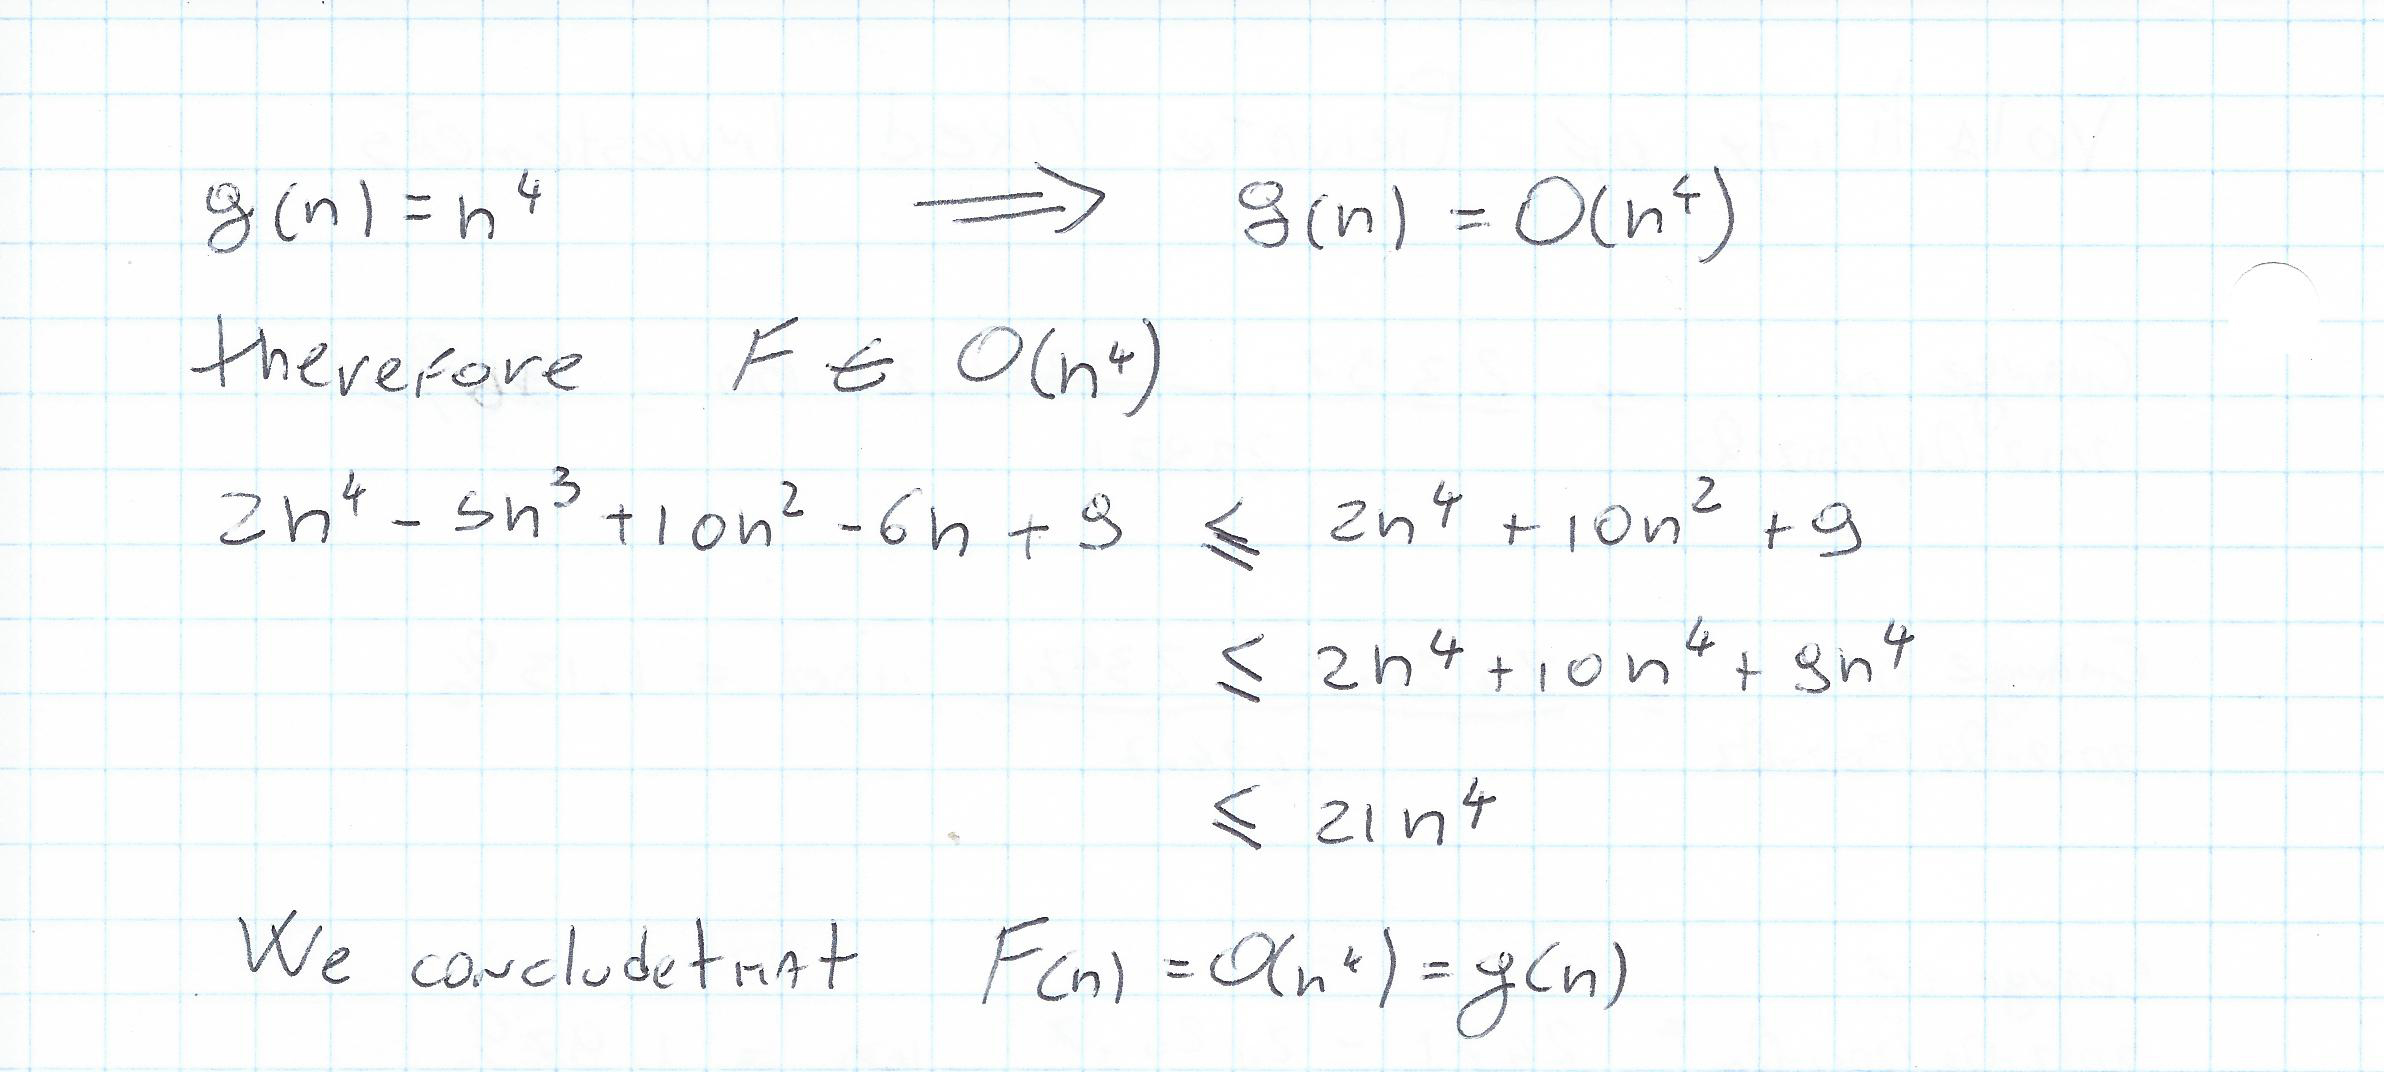 g(n) = n⁴ ⟹ g(n) = O(n⁴)
therefore F ∈ O(n⁴)
2n⁴ - 5n³ + 10n² - 6n + 9 ≤ 2n⁴ + 10n² + 9
≤ 2n⁴ + 10n⁴ + 9n⁴
≤ 21n⁴
We conclude that F(n) = O(n⁴) = g(n)